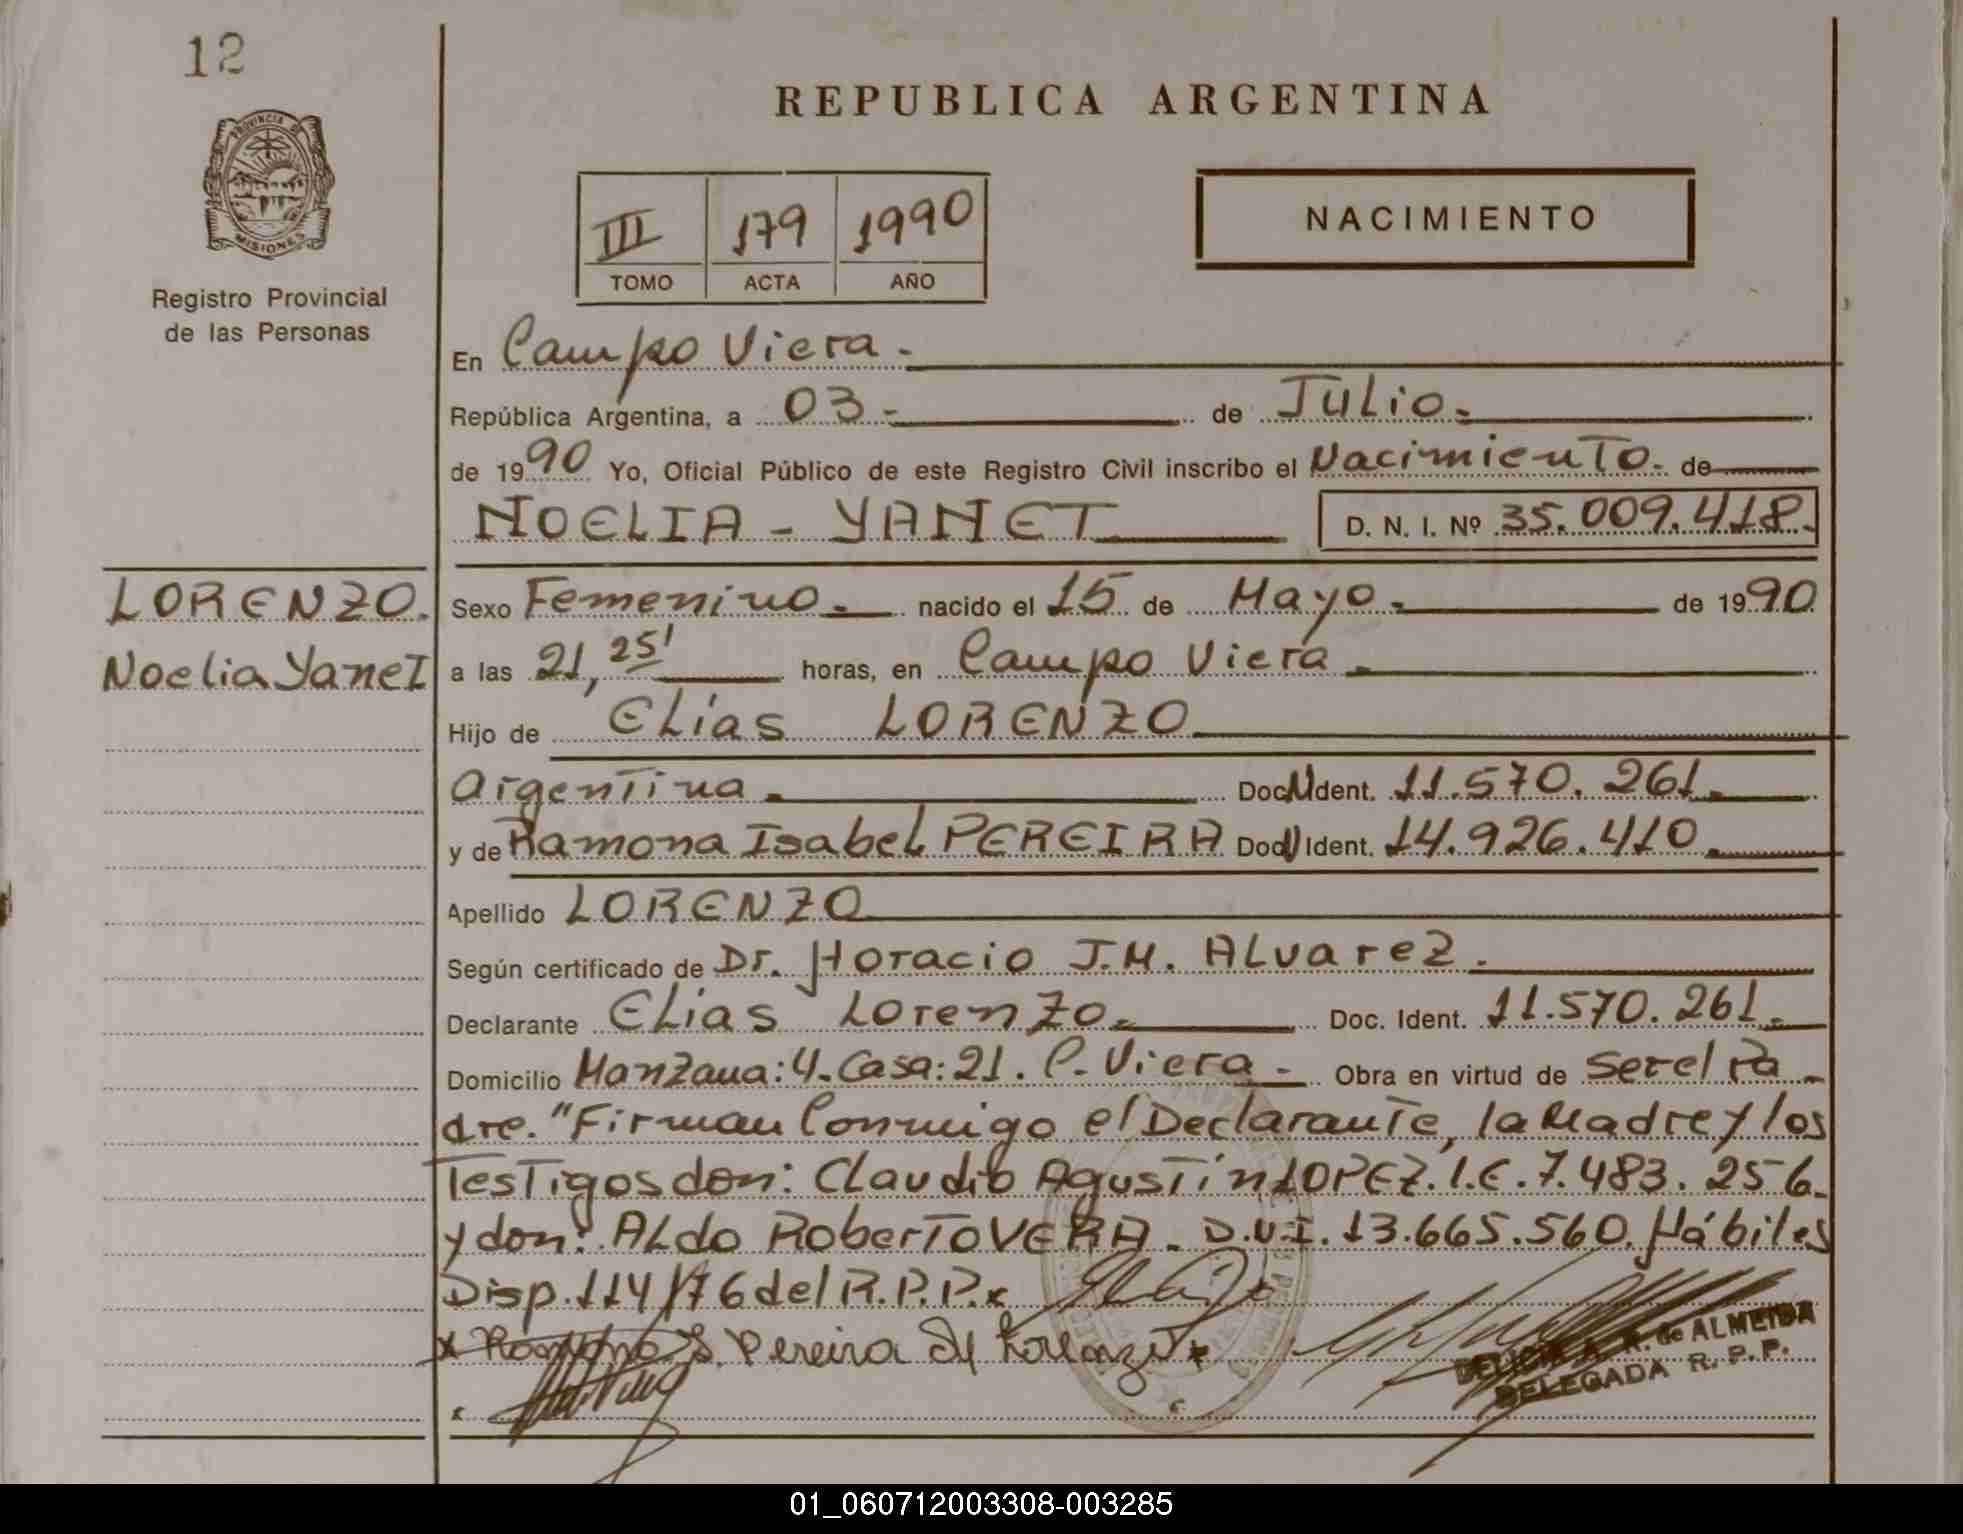 12
REPUBLICA ARGENTINA
PROVINCIA DE
MISIONES
Registro Provincial
de las Personas
III 179 1990
TOMO ACTA AÑO
NACIMIENTO
En Campo Viera.-
República Argentina, a 03.- de Julio.-
de 1990 Yo, Oficial Público de este Registro Civil inscribo el Nacimiento. de
NOELIA - YANET D. N. I. Nº 35.009.418.
LORENZO.
Noelia Yanet
Sexo Femenino.- nacido el 15 de Mayo.- de 1990
a las 21,25' horas, en Campo Viera.-
Hijo de Elías LORENZO
Argentina.- Doc. Ident. 11.570.261.-
y de Ramona Isabel PEREIRA Doc. Ident. 14.926.410.-
Apellido LORENZO
Según certificado de Dr. Horacio J.M. Alvarez.
Declarante Elias Lorenzo.- Doc. Ident. 11.570.261.-
Domicilio Manzana: 4. Casa: 21. C. Viera.- Obra en virtud de ser el Pa
dre. "Firman Conmigo el Declarante, la Madre y los
Testigos don: Claudio Agustín LOPEZ. L.E. 7.483.256.
y don: Aldo Roberto VERA. D.N.I. 13.665.560. Hábiles
Disp. 114/76 del R.P.P.
I. Pereira de Lorenzo
DELICIA A. R. de ALMEIDA
DELEGADA R. P. P.
01_060712003308-003285